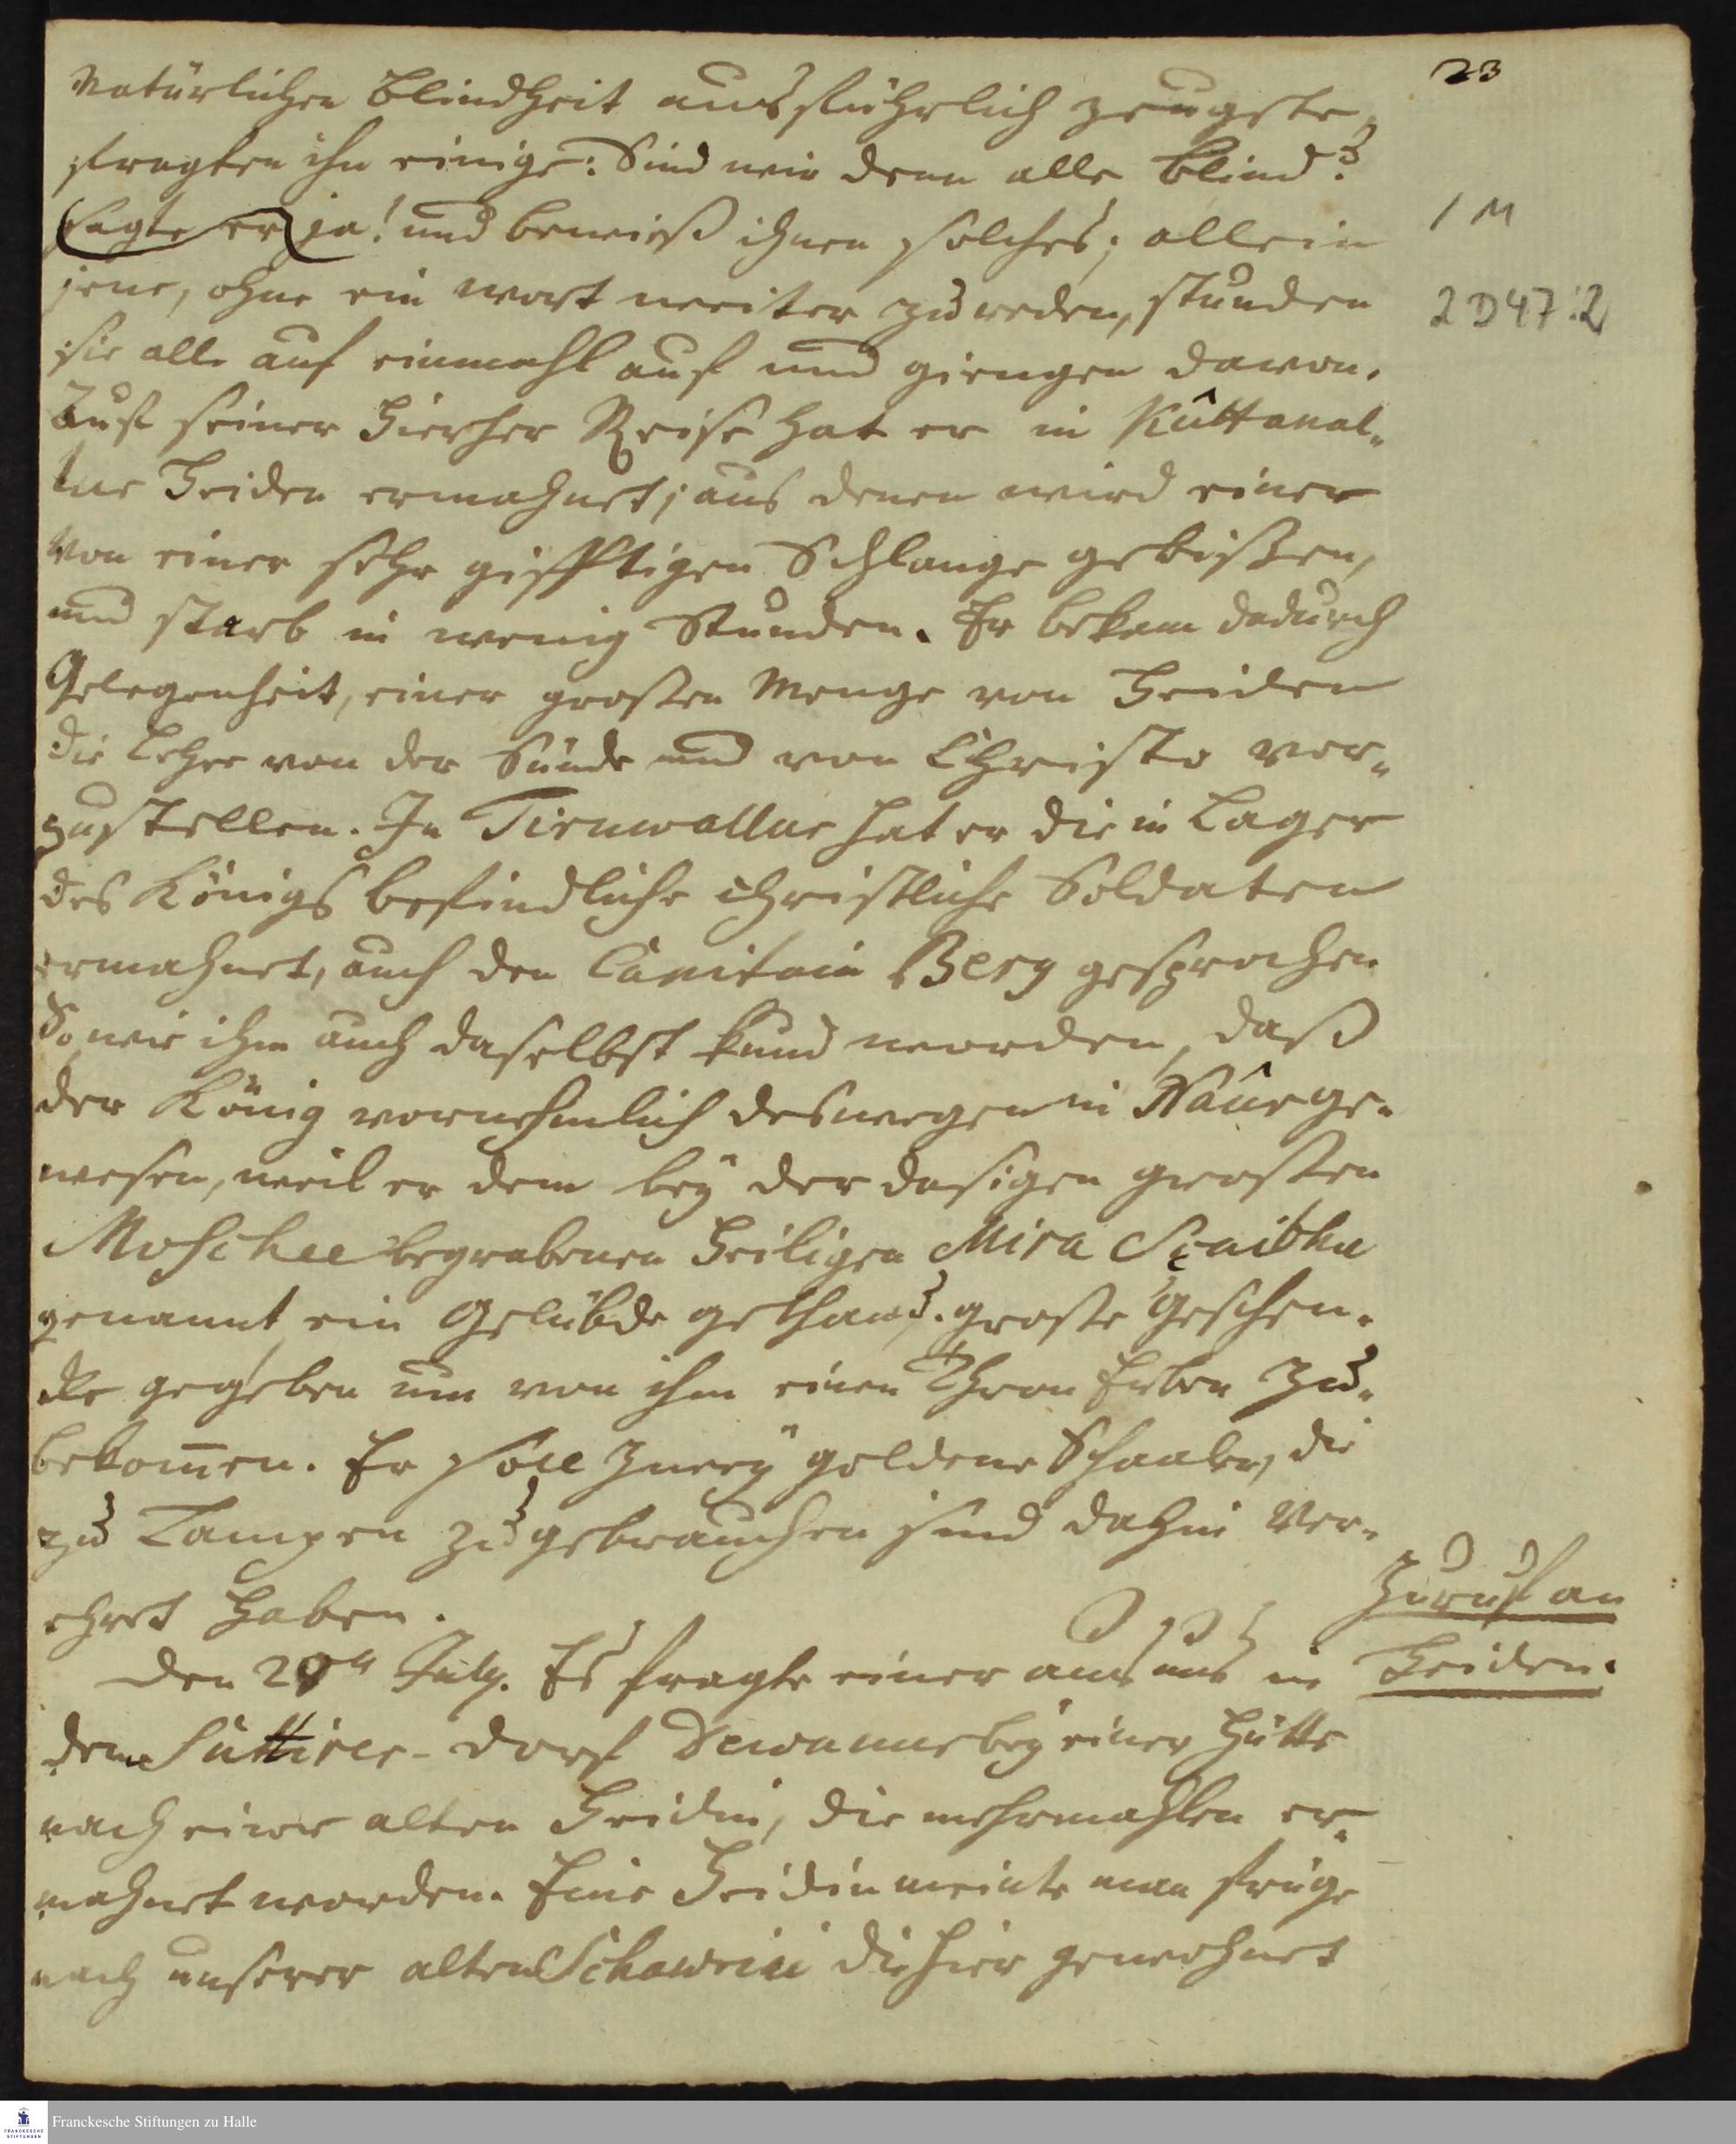 23
natürlichen Blindheit ausführlich zeugete,
fragten ihn einige: Sind wir denn alle blind?
sagte er ja! und bewieß ihnen solches; allein
1 M
jene, ohne ein wort weiter zu reden, stunden
2 D 47:2
sie alle auf einmahl auf und giengen davon.
Auf seiner Hierher Reise hat er in Kûttanal-
lur Heiden ermahnet; aus denen wird einer
von einer sehr gifftigen Schlange gebißen,
und starb in wenig Stunden. Er bekam dadurch
Gelegenheit, einer großen Menge von Heiden
die Lehre von der Sünde und von Christo vor-
zustellen. In Tiruwallur hat er die in Lager
des Königs befindliche christliche Soldaten
ermahnet, auch den Capitain Berg gesprochen
So wie ihm auch daselbst kund worden, daß
der König vornehmlich deswegen in Naûr ge-
wesen, weil er dem bey der dasigen großen
Moschee begrabenen Heiligen Mira
genannt ein Gelübde gethan u. große Geschen-
cke gegeben um von ihm einen Thron Erben zu-
bekom̅en. Er soll zwey goldene Schaalen, die
zu Lampen zu gebrauchen sind dahin ver-
ehret haben.
Zuruf an
Heiden.
Den 29ten July. Es fragte einer aus uns in
dem Suttirer-dorf Dewanur bey einer Hütte
nach einer alten Heidin, die mehrmahlen er-
mahnet worden. Eine Heidin meinte man früge
nach unserer alten Schawrini die hier gewohnet
Franckesche Stiftungen zu Halle